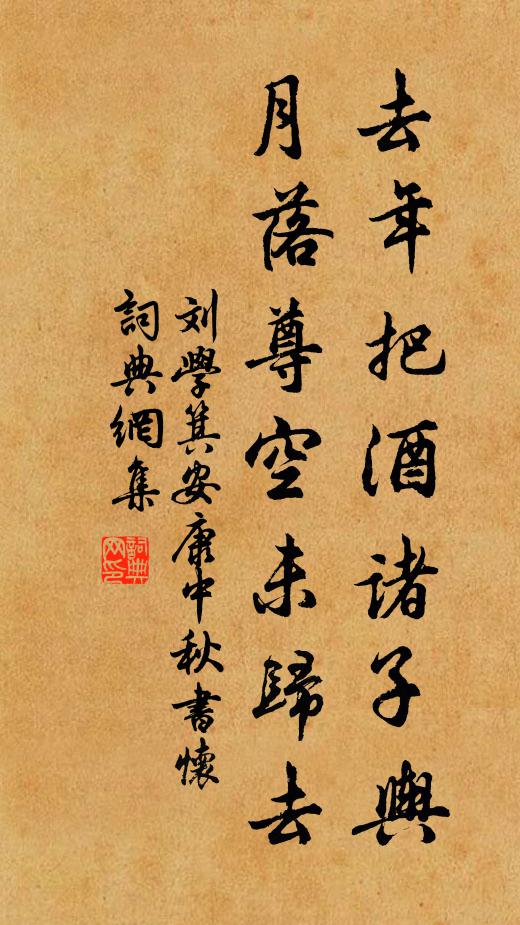 去年把酒諸子輿
月落尊空未歸去
刘學箕安康中秋書懷
詞典網集
詞典網印